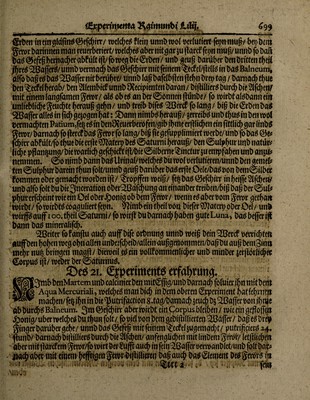 Experimenta Raimundi Lulij. 699
Erden in ein glåsens Geschirr / welches klein unnd wol verlutiert seyn muß / bey dem
Fewr darinnen man reuerberiert / welches aber nit gar zu starck seyn muß / unnd so bald das
Gefeß hernacher abkült ist / so weg die Erden / und geuß darüber den dritten theil
jhres Wassers / unnd vermach das Geschirr mit seinem Deckel / stells in das Balneum,
also daß es das Wasser nit berühre / unnd laß daselbsten siben drey tag / darnach thue
den Deckel herab / den Alembick unnd Recipienten daran / distilliers durch die Aschen /
mit einem langsamen Fewr / als ob es an der Sonnen stünde / so wirdt alsdann ein
unliebliche Feuchte herauß gehn / und treib dises Werck so lang / biß die Erden das
Wasser alles in sich gezogen hat: Dann nimbs herauß / zerreibs und thus in den wol
vermachten Patium, setz es in den Reuerberirofen / gib jhme erstlichen ein senfftlich gar lind
Fewr / darnach so sterck das Fewr so lang / biß sie gesupplimiert werde / und so das Geschirr
abkült / so thus die erste Matery des Saturni herauß / den Sulphur und natürliche
pflantzung / die warlich geschickt ist / die Silberne Tinctur zu empfahen und anzunemmen.
So nimb dann das Urinal / welches du wol verlutiere / unnd den gemelten
Sulphur darein thun solt / unnd geuß darüber das erste Oele / das von dem Silber
kommen oder gemacht worden ist / Tropffen weiß / setz das Geschirr in heisse Aschen /
und also solt du die Jnceration oder Waschung an einander treiben / biß daß der Sulphur
erscheint wie ein Oel oder Honig ob dem Fewr / wenn es aber vom Fewr gethan
wirdt / so wirdts coaguliert seyn. Nimb ein theil von diser Matery oder Oel / und
wirffs auff 100. theil Saturni / so wirst du darnach haben gute Luna, das besser ist
dann das mineralisch.
Weiter so kanstu auch auff dise ordnung unnd weiß dein Werck verrichten
auff den hohen weg ohn allen underscheid / allein außgenommen / daß du auß dem Zinn
mehr nutz bringen magst / dieweil es ein vollkommenlicher und minder zerstörlicher
Corpus ist / weder der Saturnus.
Des 21. Experiments erfahrung.
NJmb den Martem und calcinier den mit Essig / unnd darnach soluier jhn mit dem
Aqua Mercuriali, welches man dich in dem obern Experiment hat lehrnen
machen / setz jhn in die Putrifaction 8. tag / darnach zeuch dz Wasser von jhme
ab durchs Balneum. Jm Geschirr aber wirdt ein Corpus bleiben / wie ein geflossen
Honig / uber welches du thun solt / so viel von dem gedistillierten Wasser / daß es drey
Finger darüber gehe / unnd das Gefeß mit seinem Deckel zugemacht / putrificiers 24.
stund / darnach distilliers durch die Aschen / anfenglichen mit lindem Fewr / letstlichen
aber mit starckem Fewr / so wirt der Lufft auch in sein Wasser verwandlet / und solt darnach
aber mit einem hefftigen Fewr distillieren / daß auch das Element des Fewrs in
Tttt 2 sein